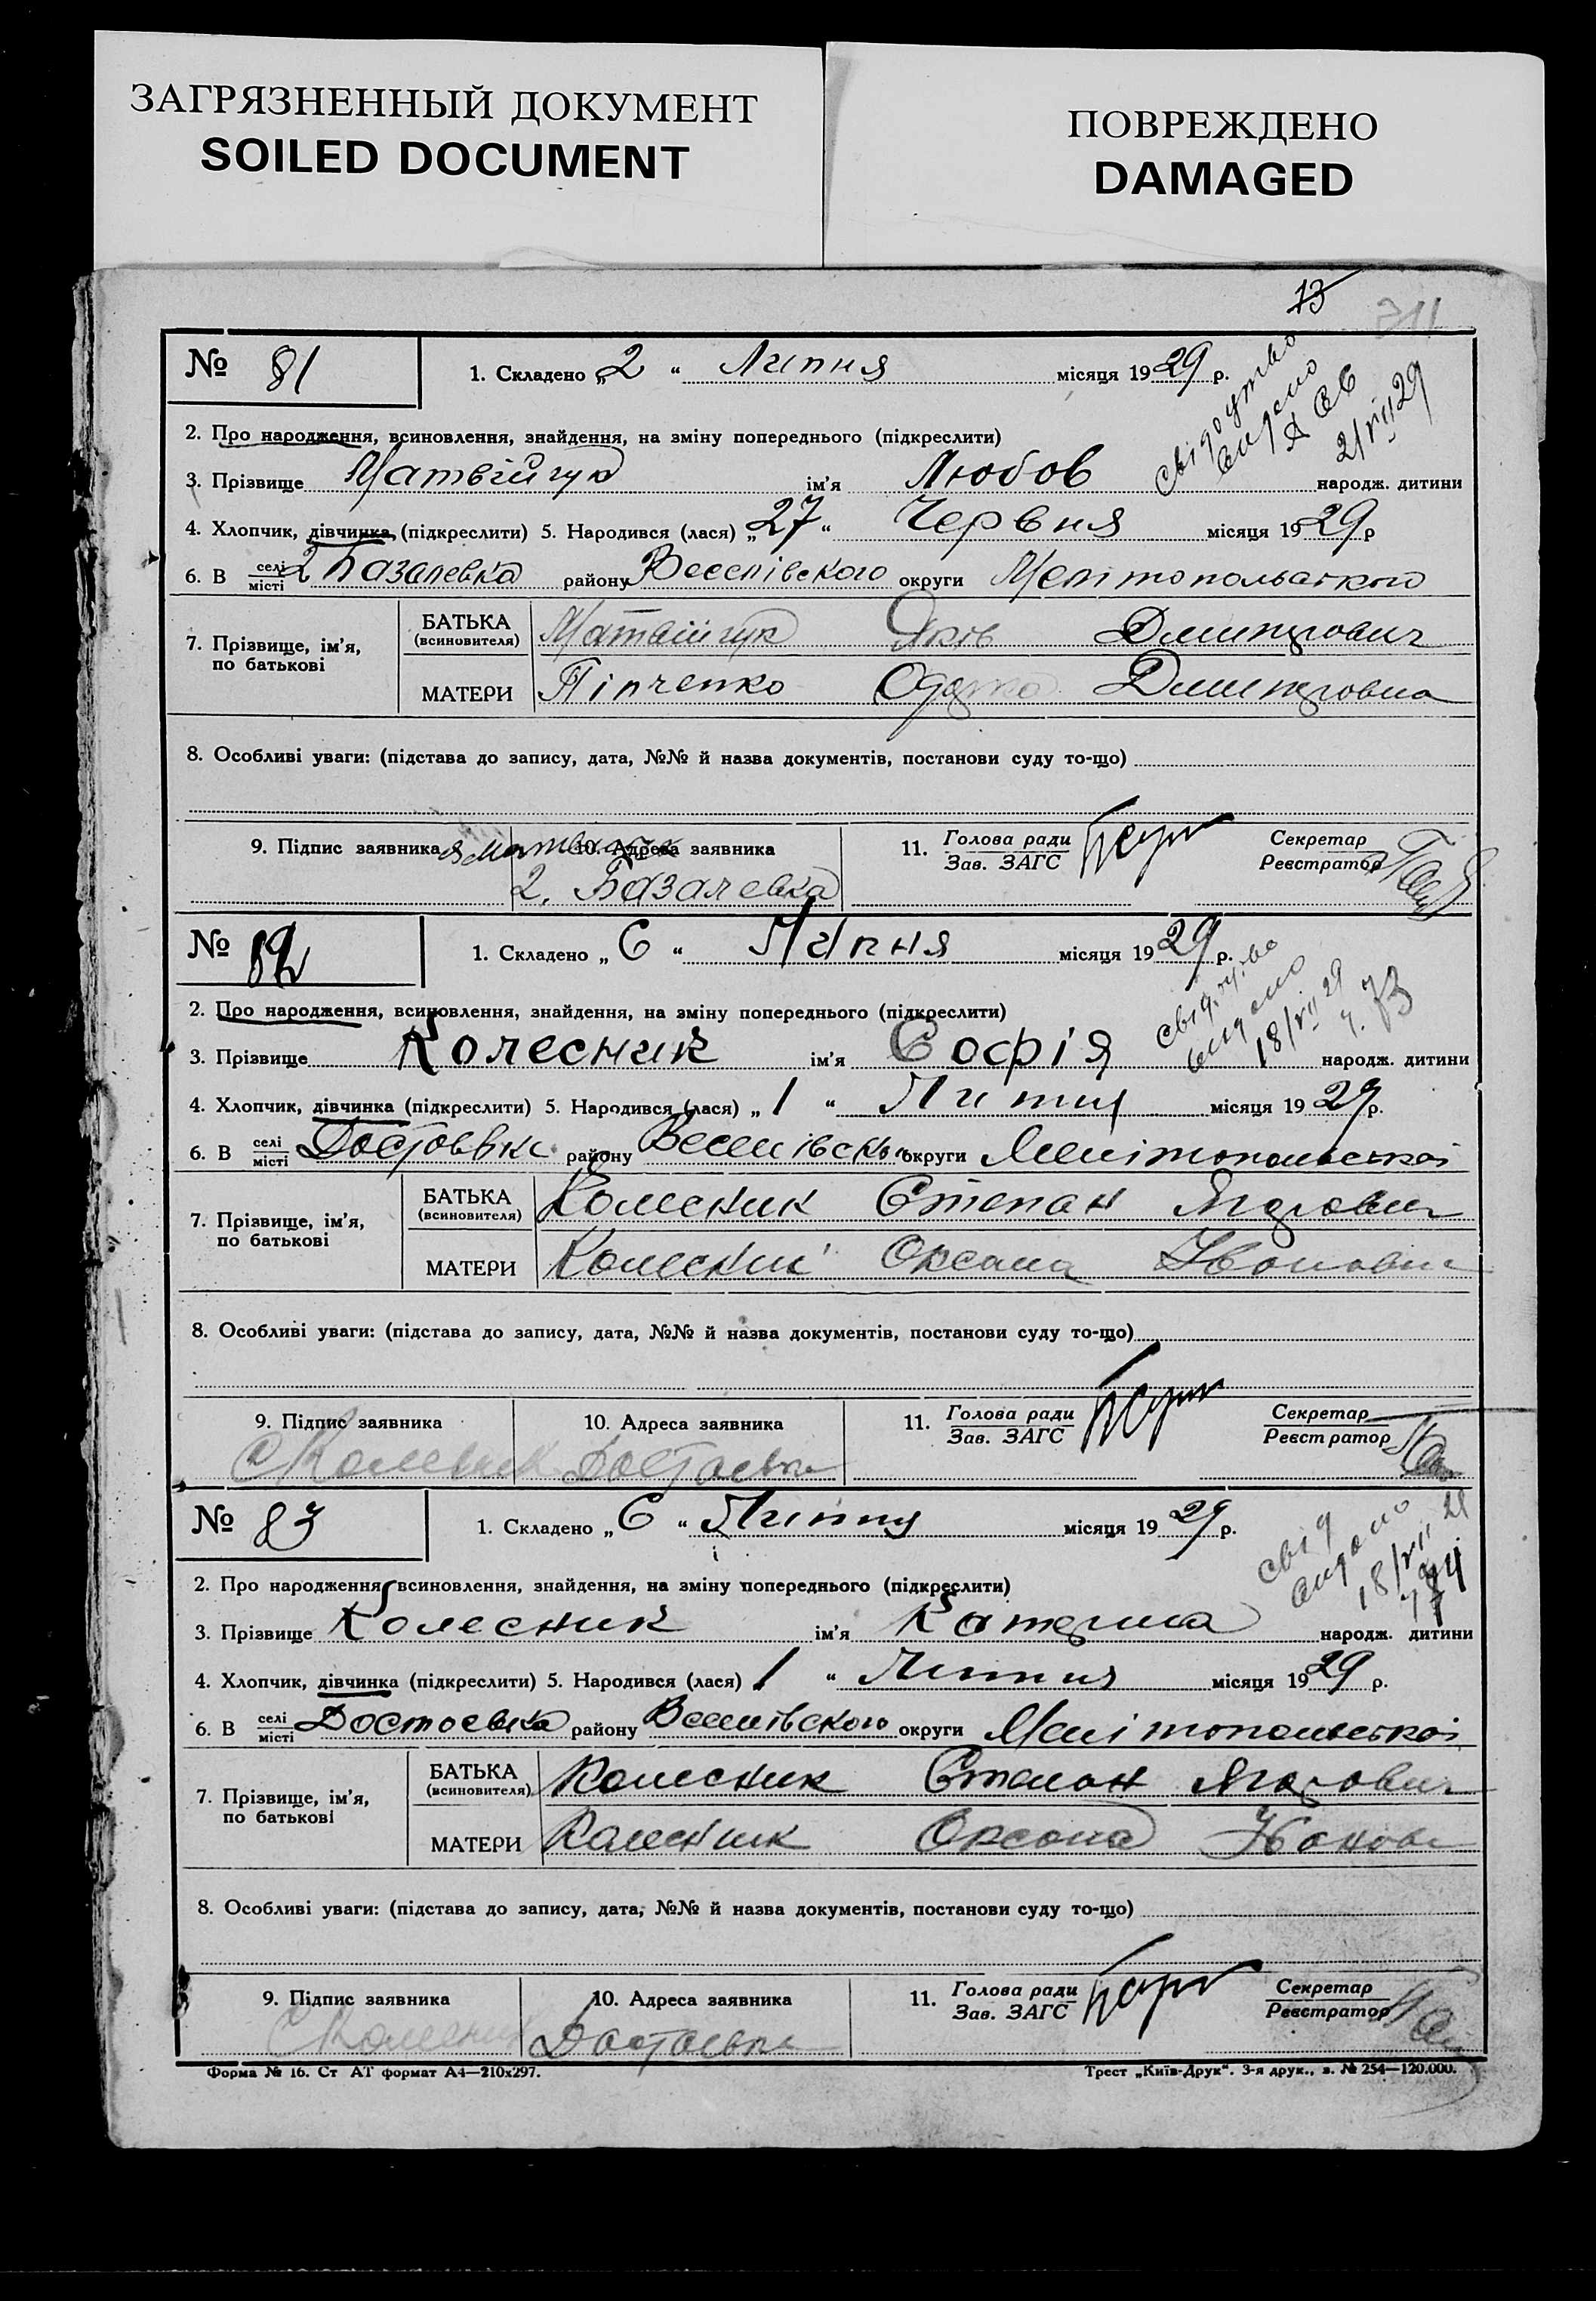 ЗАГРЯЗНЕННЫЙ ДОКУМЕНТ
SOILED DOCUMENT
ПОВРЕЖДЕНО
DAMAGED
13
311
№ 81
1. Складено „2“ Липня місяця 1929 р.
свідоцтво
видано
21/VII 29
2. Про народження, всиновлення, знайдення, на зміну попереднього (підкреслити)
3. Прізвище Матвійчук ім'я Любов народж. дитини
4. Хлопчик, дівчинка (підкреслити) 5. Народився (лася) „27“ Червня місяця 1929 р
6. В селі/місті району Веселівского округи
7. Прізвище, ім'я, по батькові
БАТЬКА (всиновителя) Матвійчук Яків Дмитрович
МАТЕРИ Дмитровна
8. Особливі уваги: (підстава до запису, дата, №№ й назва документів, постанови суду то-що)
9. Підпис заявника
10. Адреса заявника
11. Голова ради
Зав. ЗАГС
Секретар
Реєстратор
№ 82
1. Складено „6“ Липня місяця 1929 р.
видано
18/VII 29
ч. 73
2. Про народження, всиновлення, знайдення, на зміну попереднього (підкреслити)
3. Прізвище Колесник ім'я Софія народж. дитини
4. Хлопчик, дівчинка (підкреслити) 5. Народився (лася) „1“ Липня місяця 1929 р.
6. В селі/місті району округи Мелітопольської
7. Прізвище, ім'я, по батькові
БАТЬКА (всиновителя) Колесник Степан
МАТЕРИ Колесник Оксана
8. Особливі уваги: (підстава до запису, дата, №№ й назва документів, постанови суду то-що)
9. Підпис заявника
10. Адреса заявника
11. Голова ради
Зав. ЗАГС
Секретар
Реєстратор
№ 83
1. Складено „6“ Липня місяця 1929 р.
свід
видано
18/VII 29
2. Про народження, всиновлення, знайдення, на зміну попереднього (підкреслити)
3. Прізвище Колесник ім'я Катерина народж. дитини
4. Хлопчик, дівчинка (підкреслити) 5. Народився (лася) 1“ Липня місяця 1929 р.
6. В селі/місті Достоевка району Веселівского округи Мелітопольської
7. Прізвище, ім'я, по батькові
БАТЬКА (всиновителя) Колесник Степан
МАТЕРИ Колесник Оксана
8. Особливі уваги: (підстава до запису, дата, №№ й назва документів, постанови суду то-що)
9. Підпис заявника
10. Адреса заявника
11. Голова ради
Зав. ЗАГС
Секретар
Реєстратор
Форма № 16. Ст АТ формат А4—210х297.
Трест „Київ-Друк“. 3-я друк., з. № 254—120.000.